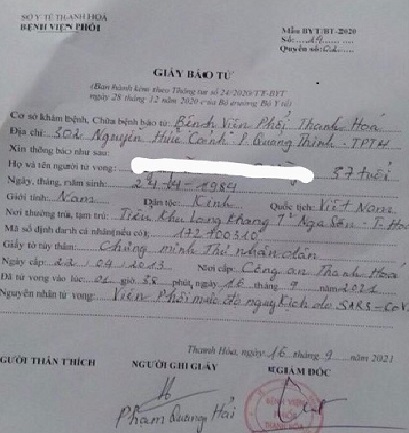 SỞ Y TẾ THANH HOÁ
BỆNH VIỆN PHỔI
Mẫu BYT/BT-2020
Số:
Quyển số:
GIẤY BÁO TỬ
(Ban hành kèm theo Thông tư số 24/2020/TT-BYT
ngày 28 tháng 12 năm 2020 của Bộ trưởng Bộ Y tế)
Cơ sở khám bệnh, Chữa bệnh báo tử: Bệnh Viện Phổi Thanh Hoá
Địa chỉ: Nguyễn Hữu Cảnh P. Quảng Thịnh - TPTH
Xin thông báo như sau:
Họ và tên người tử vong: 37 tuổi
Ngày, tháng, năm sinh: 1984
Giới tính: Nam Dân tộc: Kinh Quốc tịch: Việt Nam
Nơi thường trú, tạm trú: Tiểu Khu Nga Sơn - T. Hoá
Mã số định danh cá nhân(nếu có): 172700310
Giấy tờ tùy thân: Chứng minh Thư nhân dân
Ngày cấp: 22/04/2013 Nơi cấp: Công an Thanh Hoá
Đã tử vong vào lúc: 01 giờ 38 phút, ngày 16 tháng 9 năm 2021
Nguyên nhân tử vong: Viêm Phổi mức độ nguy kịch do SARS-CoV
Thanh Hóa, ngày 16 tháng 9 năm 2021
GƯỜI THÂN THÍCH NGƯỜI GHI GIẤY GIÁM ĐỐC
Phạm Quang Hải
BỆNH VIỆN
PHỔI
THANH HÓA